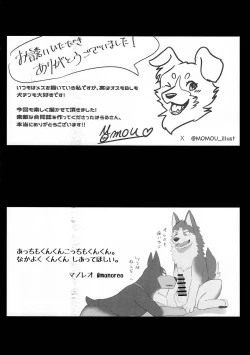 お誘いいただき
ありがとうございました!
いつもはメスを描いている私ですが、実はオスもおしも
犬すらも大好きです!
今回も楽しく描かせて頂きました!
素敵な合同誌を作ってくださったぽちるさん、
本当にありがとうございます!!
MOMOU
X @MOMOU_illust
あっちもくんくんこっちもくんくん。
なかよく くんくん しあってほしい。
マノレオ @manoreo